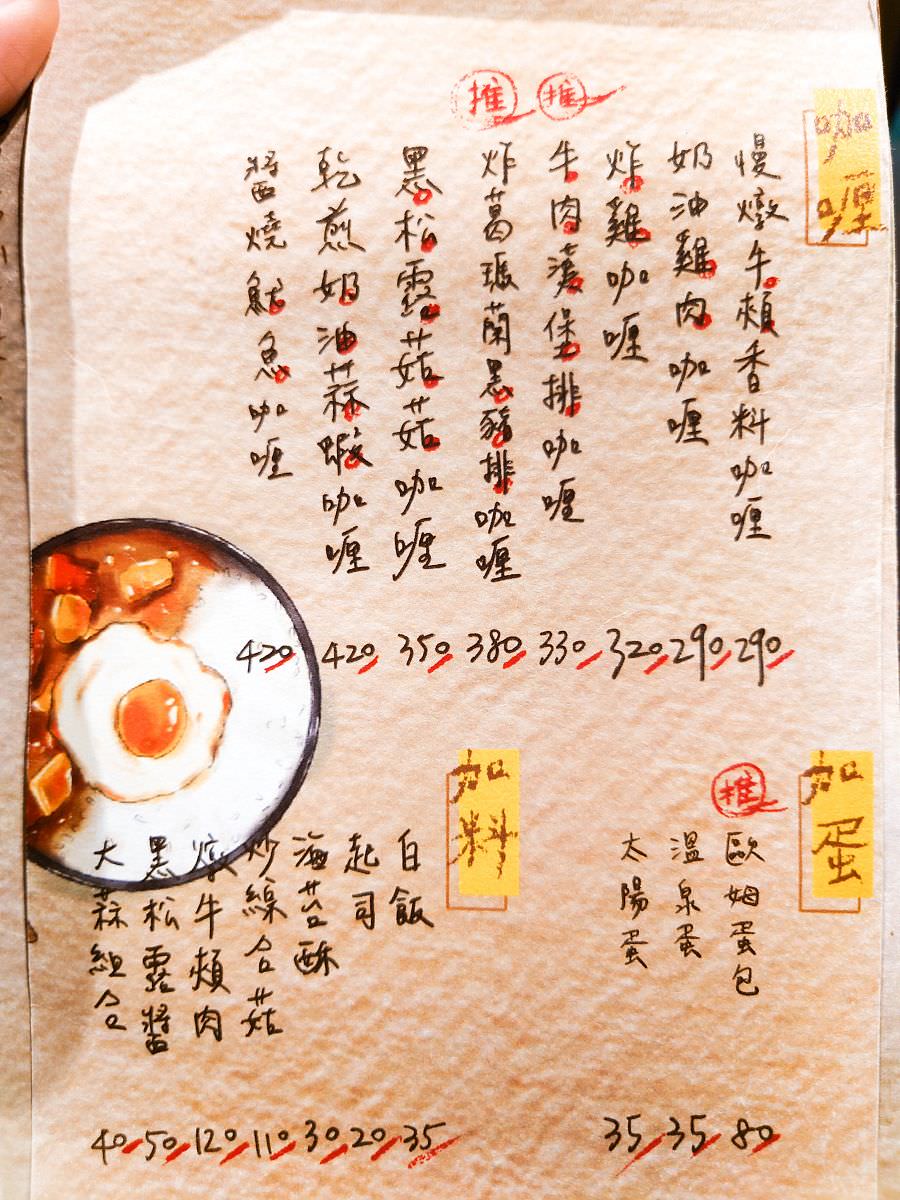 咖喱
慢燉牛頰香料咖喱
290
奶油雞肉咖喱
290
炸雞咖喱
320
推
牛肉漢堡排咖喱
330
推
炸葛瑪蘭黑豬排咖喱
380
黑松露菇菇咖喱
350
乾煎奶油蒜蝦咖喱
420
醬燒魷魚咖喱
420
加蛋
推
歐姆蛋包
80
溫泉蛋
35
太陽蛋
35
加料
白飯
35
起司
20
海苔酥
30
炒綜合菇
110
燉牛頰肉
120
黑松露醬
50
大蒜組合
40